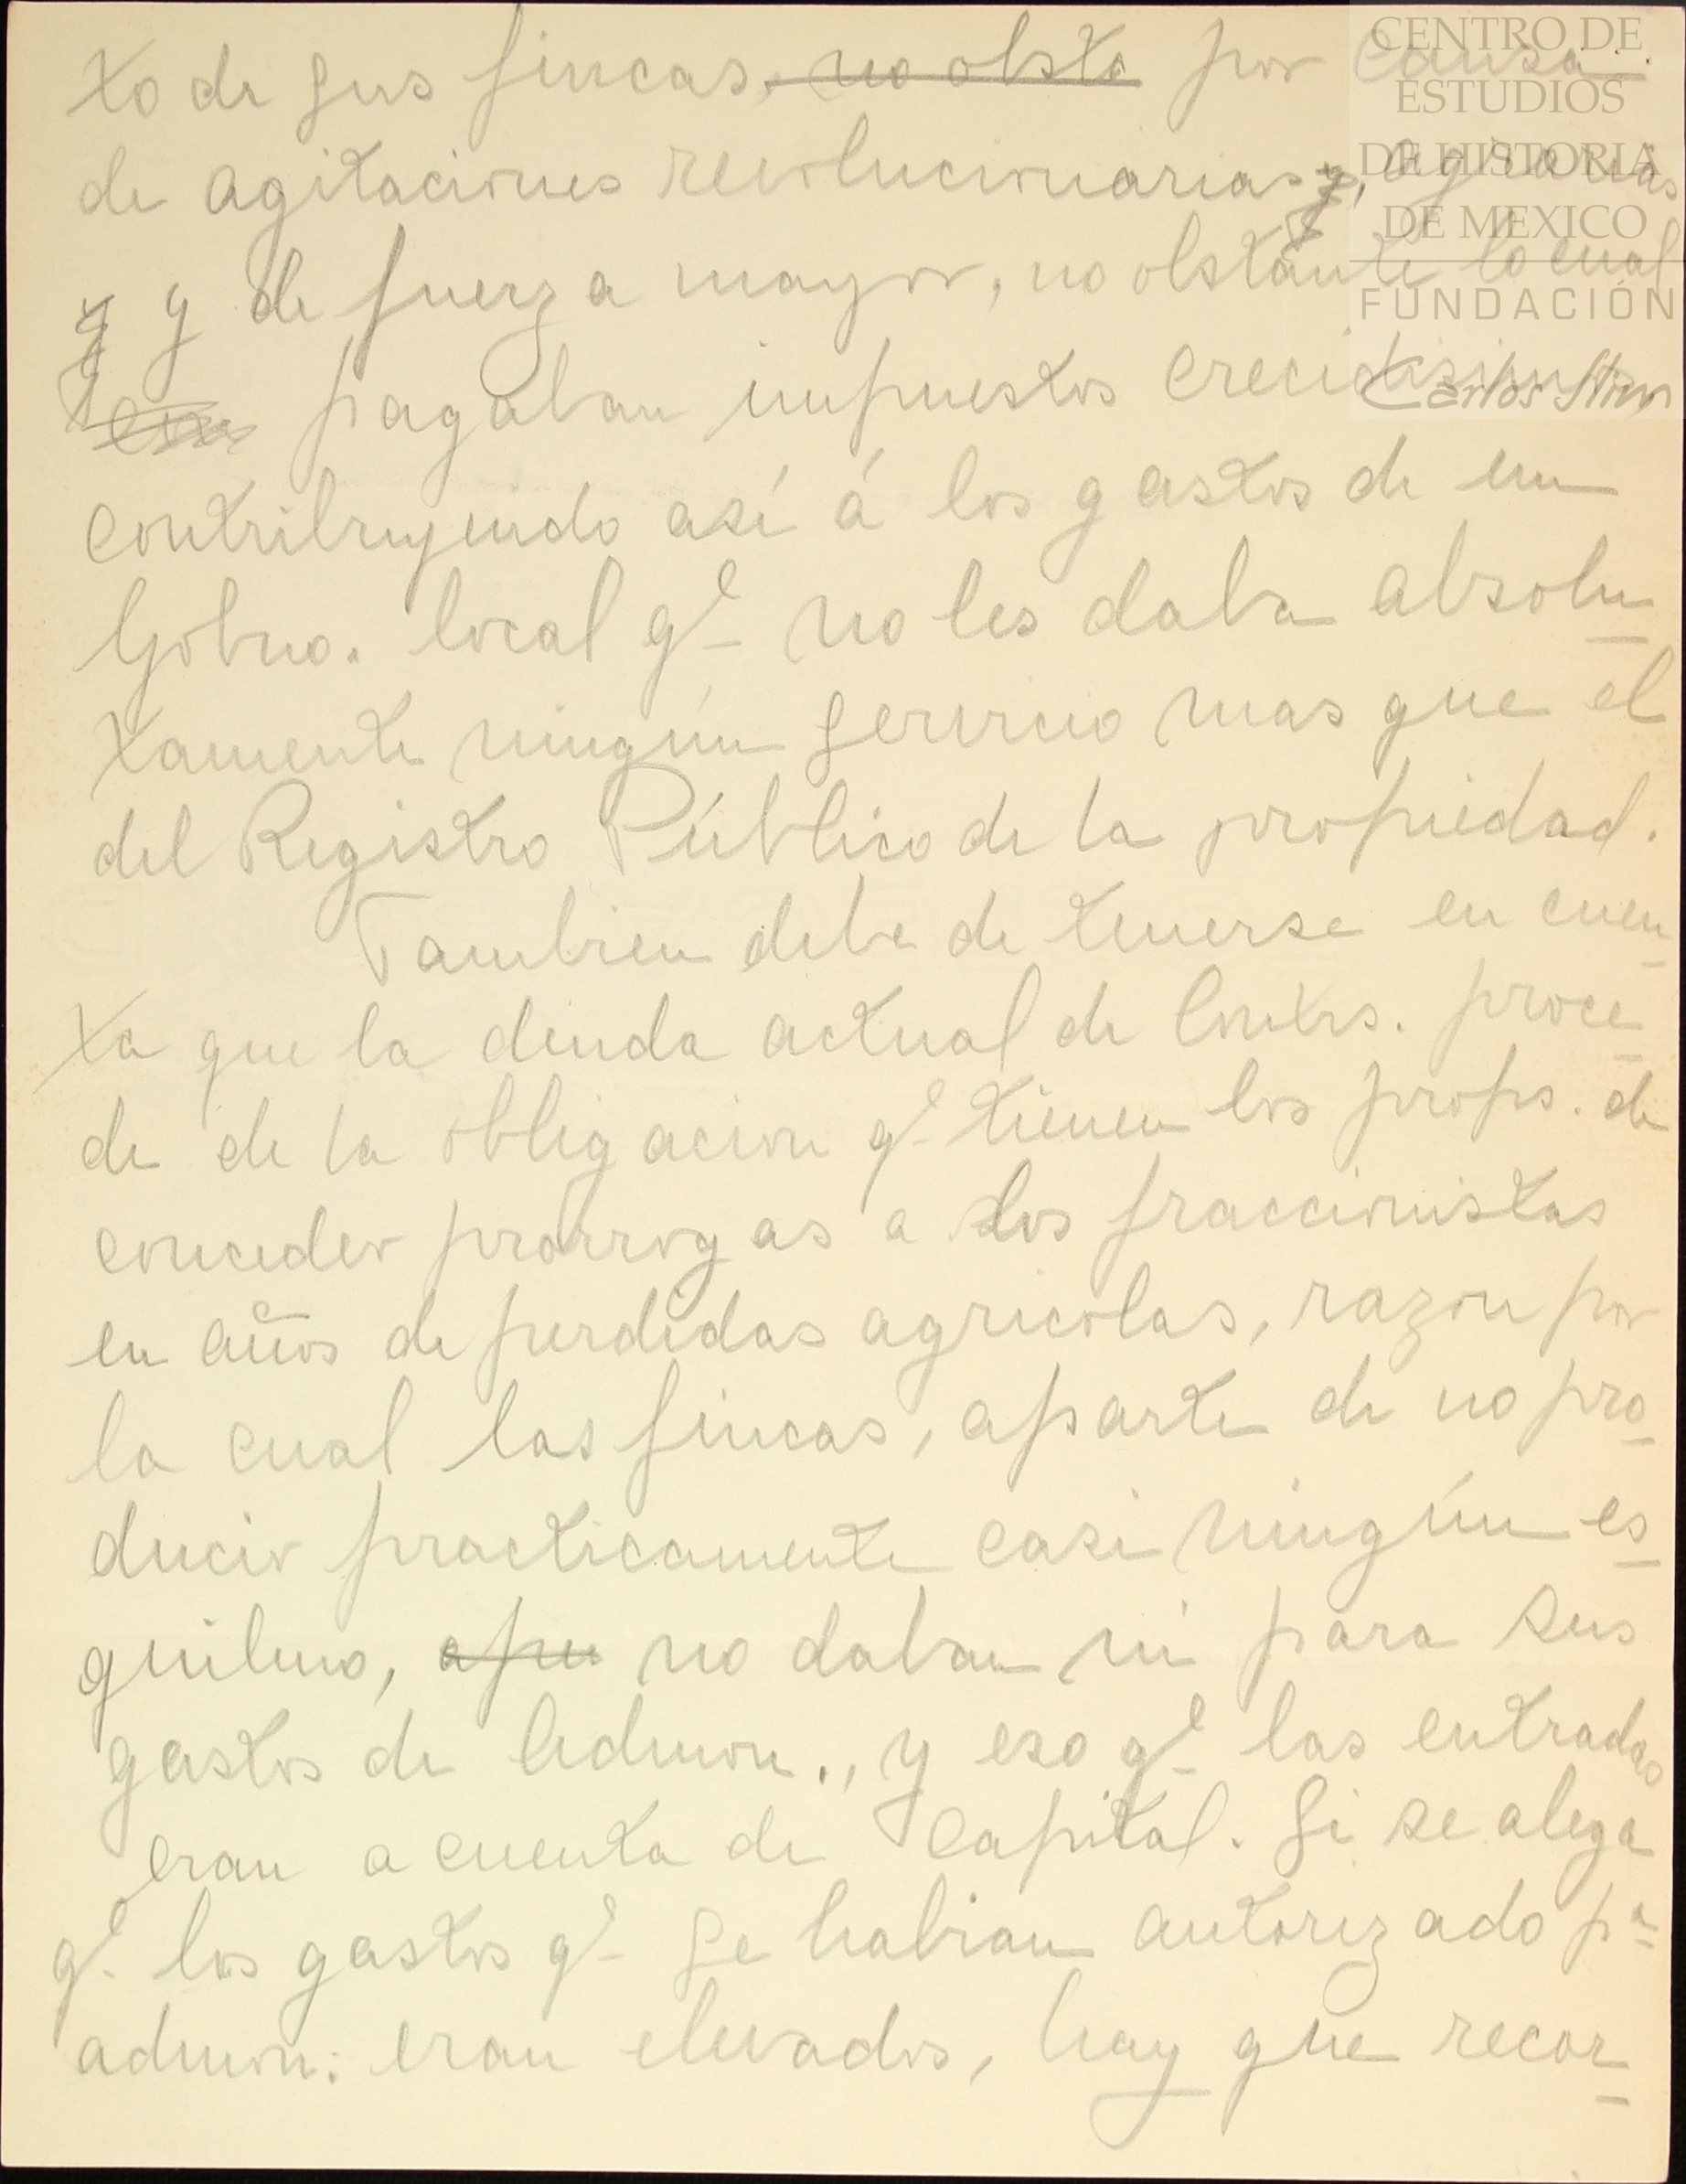 to de sus fincas, no obsta por causa
de agitaciones revolucionarias, agrarias
y de fuerza mayor, no obstante lo cual
pagaban impuestos crecidisimos
contribuyendo así á los gastos de un
Gobno. local qe no les daba absolu-
tamente ningún servicio mas que el
del Registro Público de la propiedad.
Tambien debe de tenerse en cuen-
ta que la deuda actual de Contrs. proce-
de de la obligacion qe tienen los props. de
conceder prorrogas a los fraccionistas
en años de perdidas agricolas, razon por
la cual las fincas, aparte de no pro-
ducir practicamente casi ningún es-
quilmo, apu no daban ni para sus
gastos de Admon., y eso qe las entradas
eran a cuenta de capital. Si se alega
qe los gastos qe se habian autorizado pa
admon: eran elevados, hay que recor-
CENTRO DE
ESTUDIOS
DE HISTORIA
DE MEXICO
FUNDACIÓN
Carlos Slim